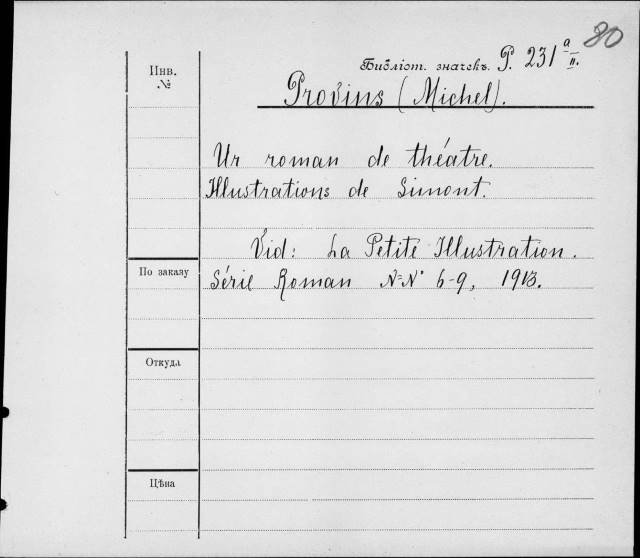 80
Библіот. значекъ. P. 231 a/II.
Инв. №
Provins (Michel).
Un roman de théatre.
Illustrations de Simont.
Vid: La Petite Illustration.
По заказу
Série Roman N-N° 6-9, 1913.
Откуда
Цѣна